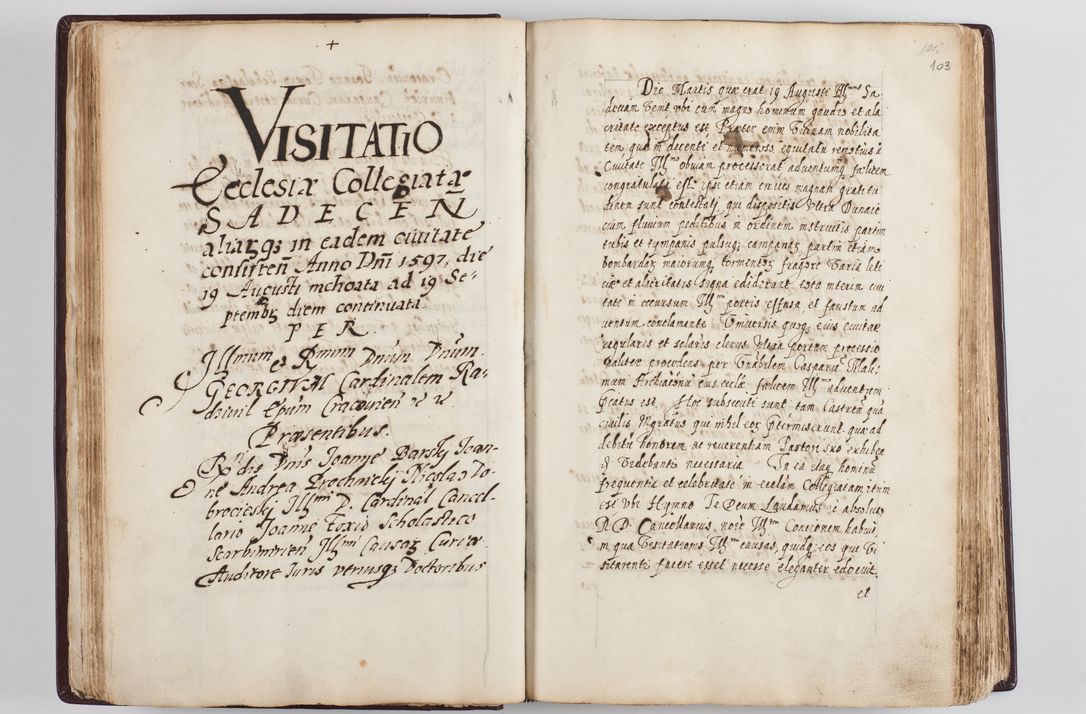 +
VISITATIO
Ecclesiæ Collegiatæ
SADECEN
aliarqз in eadem ciuitate
consisteñ Anno Dñi 1597. die
19 Augusti inchoata ad 19 Se-
ptembr diem continuata
PER.
Illmum & Rmum Dnum Dnum.
GEORGIUM Cardinalem Ra-
diuil Epum Cracouien
Præsentibus.
Rdis Dnis Joanne Barsky Joan-
ne Andrea Prochnicki Nicolao Do-
brocieski Illmi D. Cardinal Cancel-
lario Joanne Foxio Scholastico
Scarbimirien Illmi Causar Curiæ
Auditore Iuris vtriusqз Doctoribus
103
Die Martis quæ erat 19 Augusti Illmus Sa-
deciam venit vbi cum magno hominum gaudio et ala
critate exceptus est Præter enim vicinam nobilita
tem quæ in decenti et numeroso equitatu remotius a
Ciuitate Illmo obuiam processerat aduentumqз fœlicem
congratulata est ipsi etiam ciues magnam gratitu
dinem sunt contestati, qui dispositis vltra Dunaie
cum fluuium peditibus in ordinem instructis partim
tubis et tympanis pulsuqз campanarз partim etiam
bombardar maiorumqз tormentorз fragore varia leti
ciæ et alacritatis signa ediderant tota interim ciui
tate in occursum Illmi portis effusa et faustum ad
uentum conclamante Vniuersis quoqз eius ciuitatis
regularis et sæcularis clerus vltra portam processio
naliter procedens per Vnabilem Casparũ Mali
nam Archiaconũ eius ecclæ fœlicem Illmi aduentum
pcatus est. Hos subsecuti sunt tam Castren quã
ciuilis Mgratus qui nihil eorз ptermiserunt quæ ad
debitũ honorem ac reuerentiam Pastori suo exhibẽ
dã videbantur necessaria. In ea itaqз hominũ
frequentia et celebritate in eccłam Collegiatam itum
est vbi Hymno Te Deum Laudamus absoluto
R D. Cancellarius, noĩe Illmi Concionem habuit
in qua Visitationis Illmi causas, quidqз eos qui vi
sitarentur facere esset necesse eleganter edocuit.
et